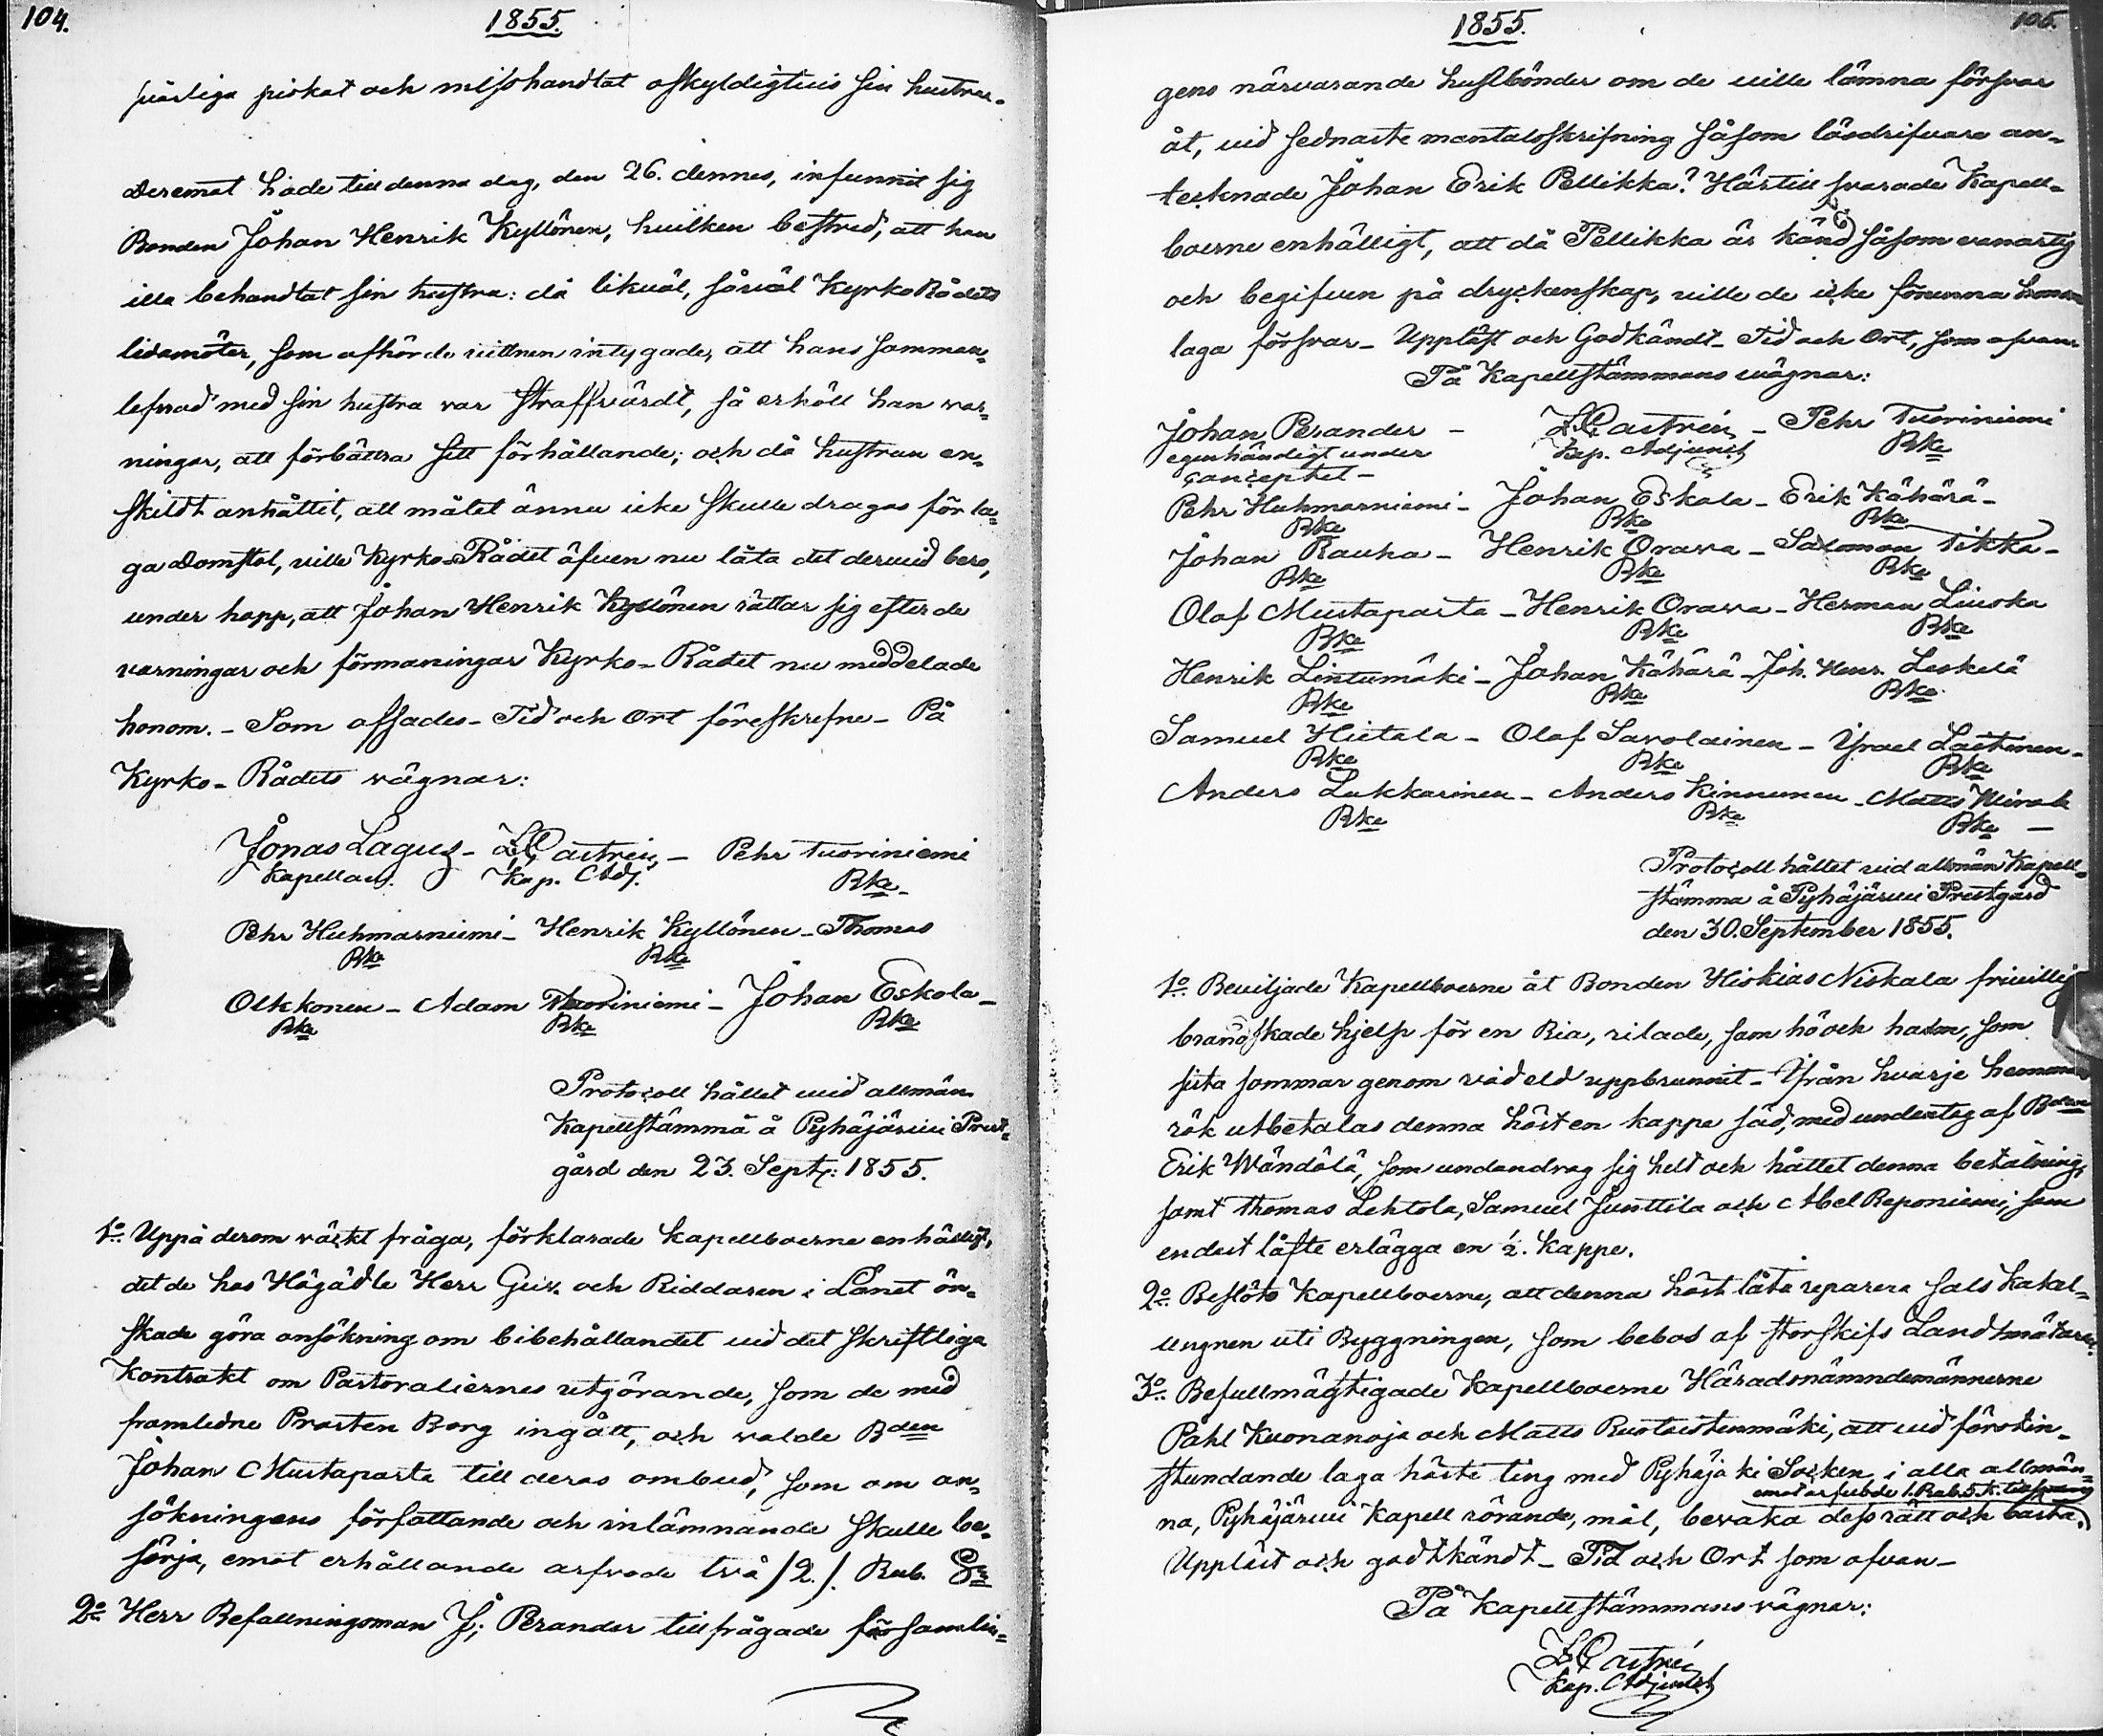 104.
1855.
piskat och misshandlat oskyldigtvis sin hustru.
Deremot hade till denna dag, den 26. dennes, infunnit sig
Bonden Johan Henrik Kyllönen, hvilken bestred, att han
illa behandlat sin hustru: då likväl, såväl KyrkoRådets
ledamöter, som afhörde vittnen intygade, att hans samman-
lefnad med sin hustru var straffvärdt, så erhöll han var-
ningar, att förbättra sitt förhållande; och då hustrun en-
skildt anhållit, att målet ännu icke skulle dragas för la-
ga Domstol, ville Kyrko-Rådet äfven nu låta det dervid bero,
under hopp, att Johan Henrik Kyllönen rättar sig efter de
varningar och förmaningar Kyrko-Rådet nu meddelade
honom. - Som afsades - Tid och Ort föreskrefne - På
Kyrko-Rådets vägnar:
Jonas Lagus - Z Castrén - Pehr Tuoriniemi
Kapellan. Kap. Adj. Bke.
Pehr Huhmarniemi - Henrik Kyllönen - Thomas
Bke Bke
Olkkonen - Adam Tuoriniemi - Johan Eskola -
Bke Bke Bke
Protocoll hållet vid allmän
Kapellstämma å Pyhäjärvi Prest-
gård den 23. Sept: 1855.
1o Uppå derom väckt fråga, förklarade kapellboerne enhälligt,
det de hos Högädle Herr Guv. och Riddaren i Länet ön-
skade göra ansökning om bibehållandet vid det skriftliga
Kontrakt om Pastoraliernes utgörande, som de med
framledne Prosten Borg ingått, och valde Bden
Johan Mustaparta till deras ombud, som om an-
sökningens författande och inlämnande skulle be-
sörja, emot erhållande arfvode två /2./. Rub. Sr
2o Herr Befallningsman J; Perander tillfrågade församlin-
1855.
105.
gens närvarande husbönder om de ville lämna försvar
åt, vid sednaste mantalsskrifning såsom lösdrifvare an-
tecknade Johan Erik Pellikka? Härtill svarade Kapell-
boerne enhälligt, att då Pellikka är känd såsom vanartig
och begifven på dryckenskap, ville de icke förunna honom
laga försvar - Uppläst och Godkändt - Tid och Ort, som ofvan
På Kapellstämmans vägnar:
Johan Perander - Z Castrén - Pehr Tuoriniemi
egenhändigt under Kap. Adjunct Bke
conceptet -
Pehr Huhmarniemi - Johan Eskola - Erik Kähärä -
Bke Bke Bke
Johan Rauha - Henrik Orava - Salomon Tikka -
Bke Bke Bke
Olof Mustaparta - Henrik Orava - Herman Liuska
Bke Bke Bke
Henrik Lintumäki - Johan Kähärä - Joh. Henr. Leskelä
Bke Bke Bke
Samuel Hietala - Olof Savolainen - Israel Laitinen -
Bke Bke Bke
Anders Lukkarinen - Anders Kinnunen - Matts
Bke Bke Bke -
Protocoll hållet vid allmän Kapell-
stämma å Pyhäjärvi Prestgård
den 30. September 1855.
1o Beviljade Kapellboerne åt Bonden Hiskias Niskala frivillig
brandskade hjelp för en Ria, rilade, som hö och halm, som
sista sommar genom vådeld uppbrunnit - Ifrån hvarje hemmans
rök utbetalas denna höst en kappe säd, med undantag af Bdene
Erik Wändälä, som undandrog sig helt och hållet denna betalning,
samt Thomas Lehtola, Samuel Junttila och Abel Reponiemi, som
endast låfte erlägga en ½. kappe.
2o Beslöto Kapellboerne, att denna höst låta reparera Sals Kakel-
ungnen uti Byggningen, som bebos af storskifs Landtmätaren.
3o Befullmägtigade Kapellboerne Häradsnämndemännerne
Påhl Kuonanoja och Matts Ruotoistenmäki, att vid förstin-
stundande laga höste ting med Pyhäjoki Socken i alla allmän-
emot arfvode 1. Rub. S.
na, Pyhäjärvi Kapell rörande, mål, bevaka dess rätt och bästa.
Uppläst och godtkändt - Tid och Ort som ofvan -
På Kapellstämmans vägnar:
Z Castrén
Kap. Adjunct